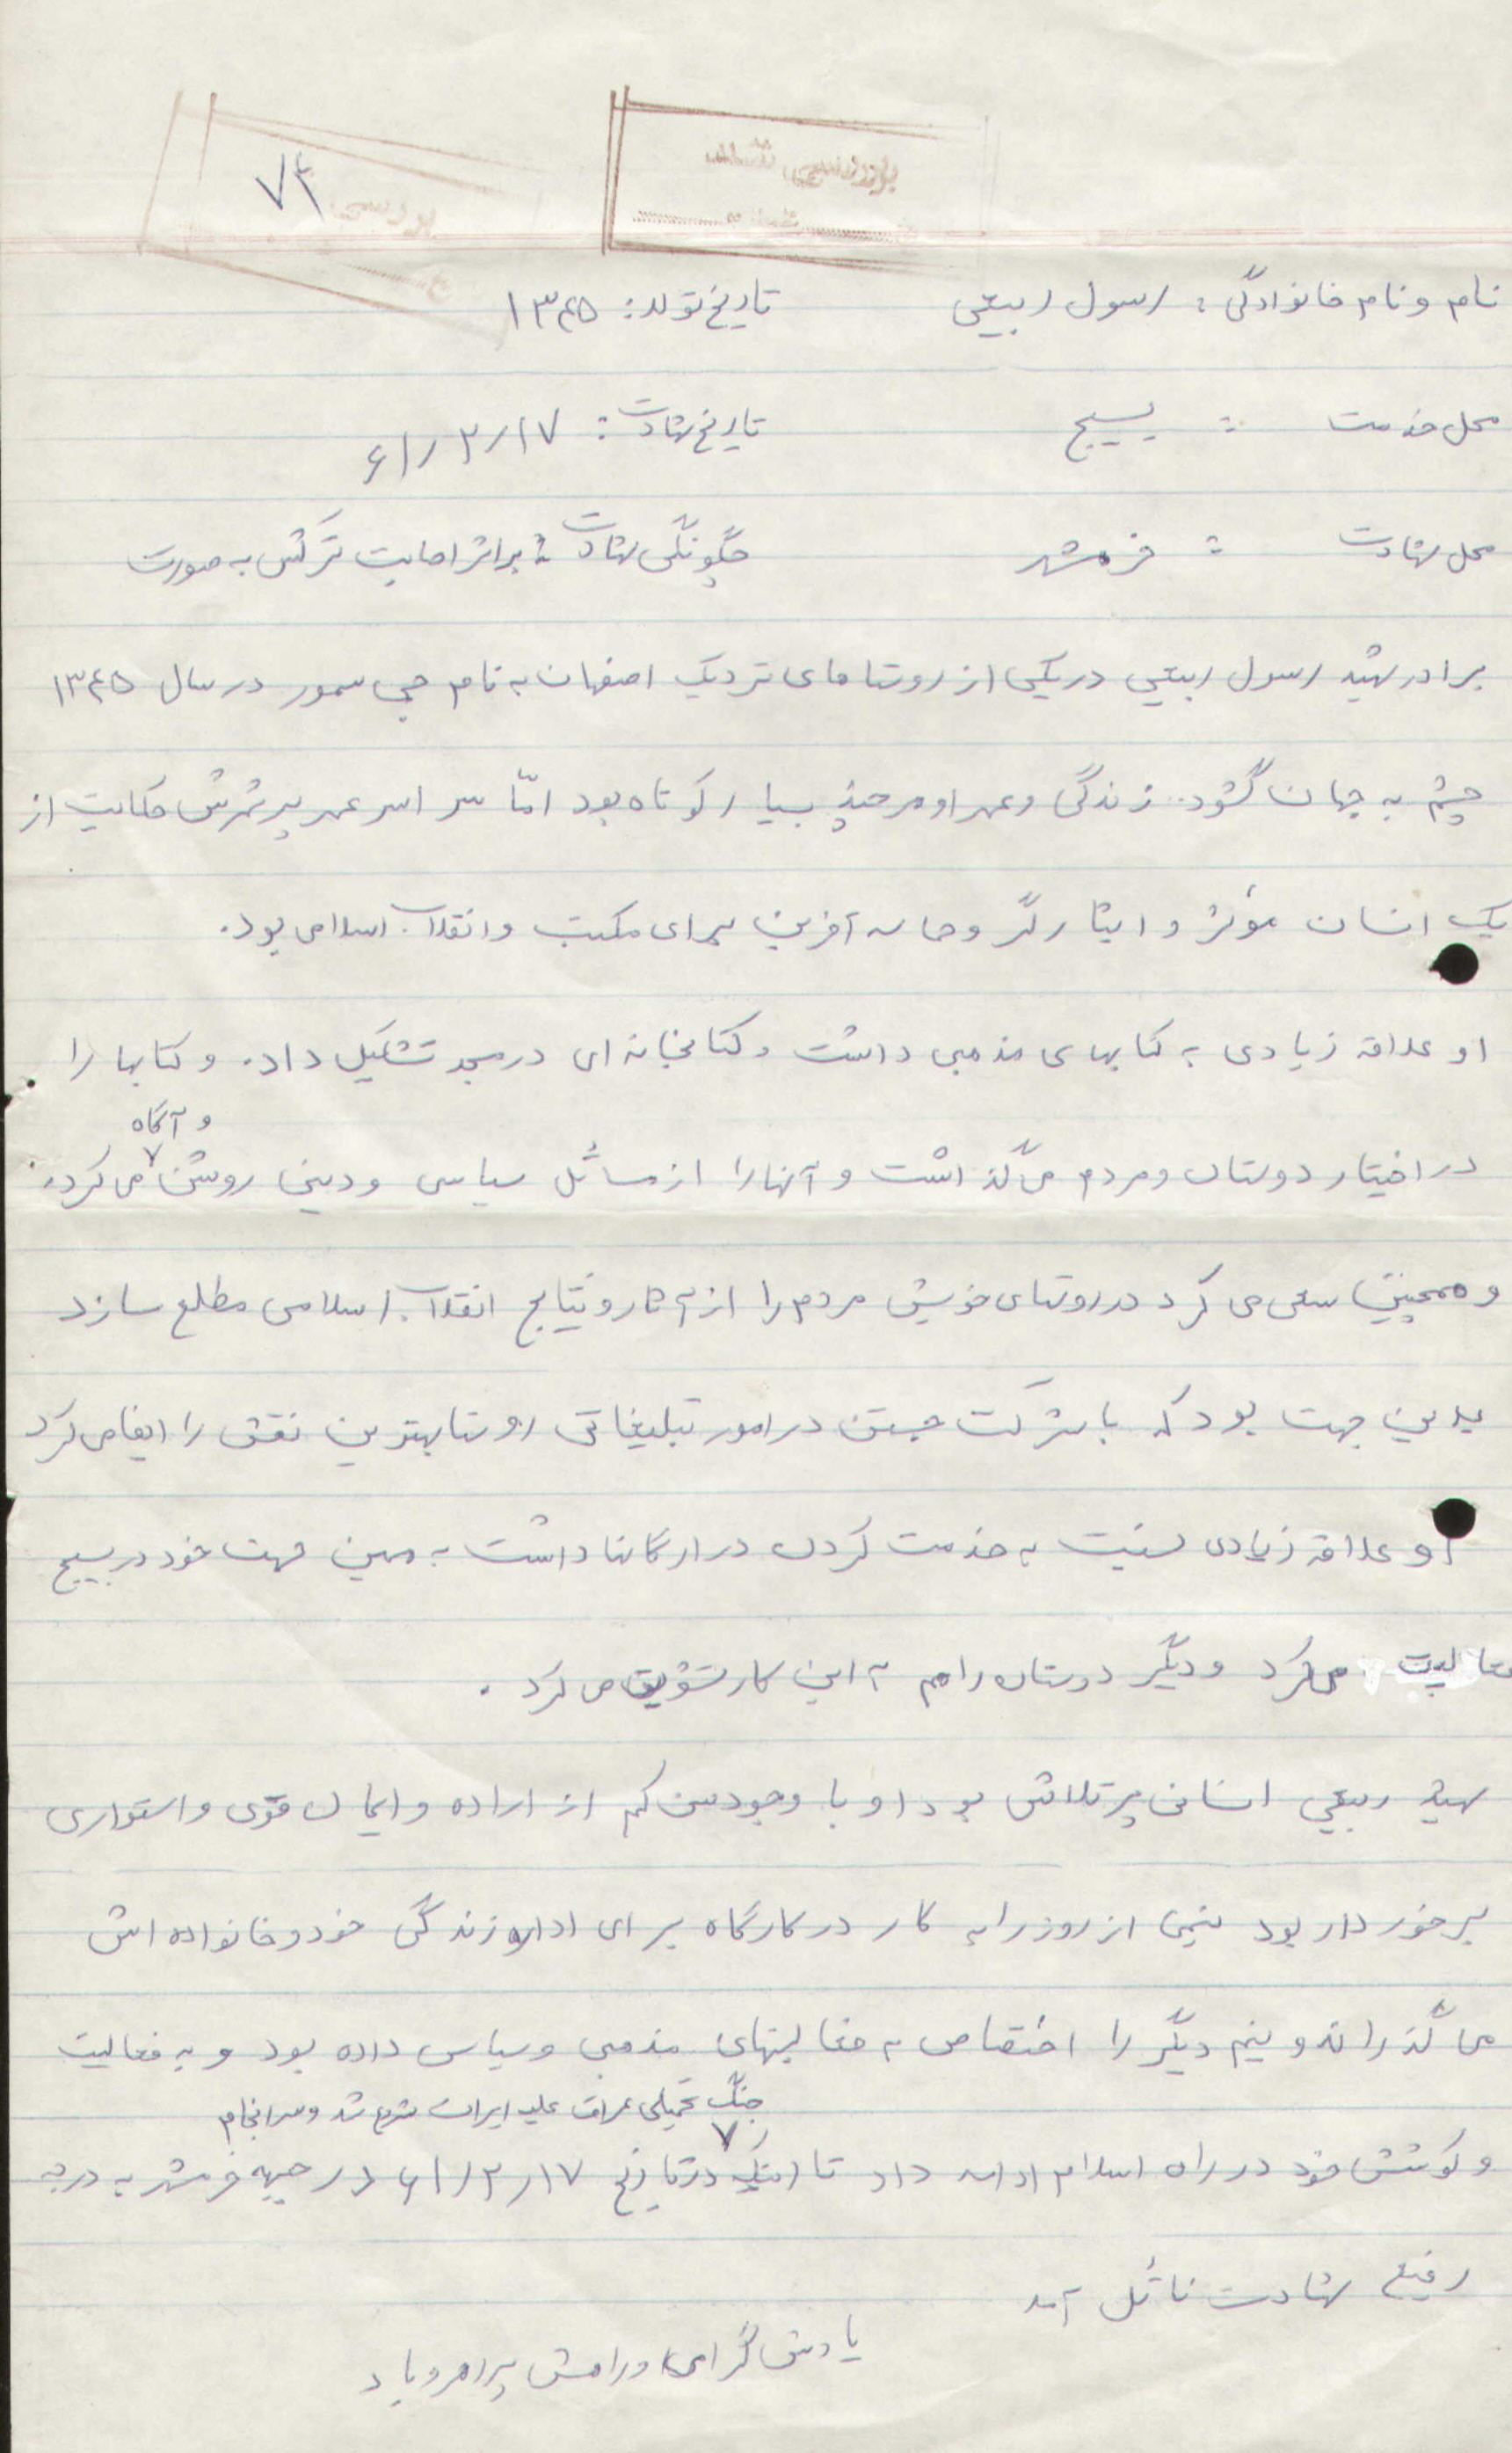 بازنویسی شد
بررسی
۷۴
نام و نام خانوادگی : رسول ربیعی تاریخ تولد : ۱۳۴۵
محل خدمت : بسیج تاریخ شهادت : ۶۱/۲/۱۷
محل شهادت : خرمشهر چگونگی شهادت : براثر اصابت ترکش به صورت
برادر شهید رسول ربیعی در یکی از روستاهای نزدیک اصفهان به نام جی سمور در سال ۱۳۴۵
چشم به جهان گشود. زندگی و عمر او هر چند بسیار کوتاه بود امّا سراسر عمر پر ثمرش حکایت از
یک انسان مؤثر و ایثارگر و حماسه آفرین برای مکتب و انقلاب اسلامی بود.
او علاقه زیادی به کتابهای مذهبی داشت و کتابخانه ای در مسجد تشکیل داد. و کتابها را
در اختیار دوستان و مردم می گذاشت و آنها را از مسائل سیاسی و دینی روشن و آگاه می کرد.
و همچنین سعی می کرد در روستای خویش مردم را از آثار و نتایج انقلاب اسلامی مطلع سازد
بدین جهت بود که با شرکت جستن در امور تبلیغاتی روستا بهترین نقش را ایفا می کرد
او علاقه زیادی نسبت به خدمت کردن در ارگانها داشت به همین جهت خود در بسیج
فعالیت می کرد و دیگر دوستان را هم به این کار تشویق می کرد .
شهید ربیعی انسانی پر تلاش بود او با وجود سن کم از اراده و ایمان قوی و استواری
برخوردار بود نیمی از روز را به کار در کارگاه برای اداره زندگی خود و خانواده اش
می گذراند و نیم دیگر را اختصاص به فعالیتهای مذهبی و سیاسی داده بود و به فعالیت
و کوشش خود در راه اسلام ادامه داد تا اینکه جنگ تحمیلی عراق علیه ایران شروع شد و سرانجام در تاریخ ۶۱/۲/۱۷ در جبهه خرمشهر به درجه
رفیع شهادت نائل آمد
یادش گرامی و راهش پر رهرو باد